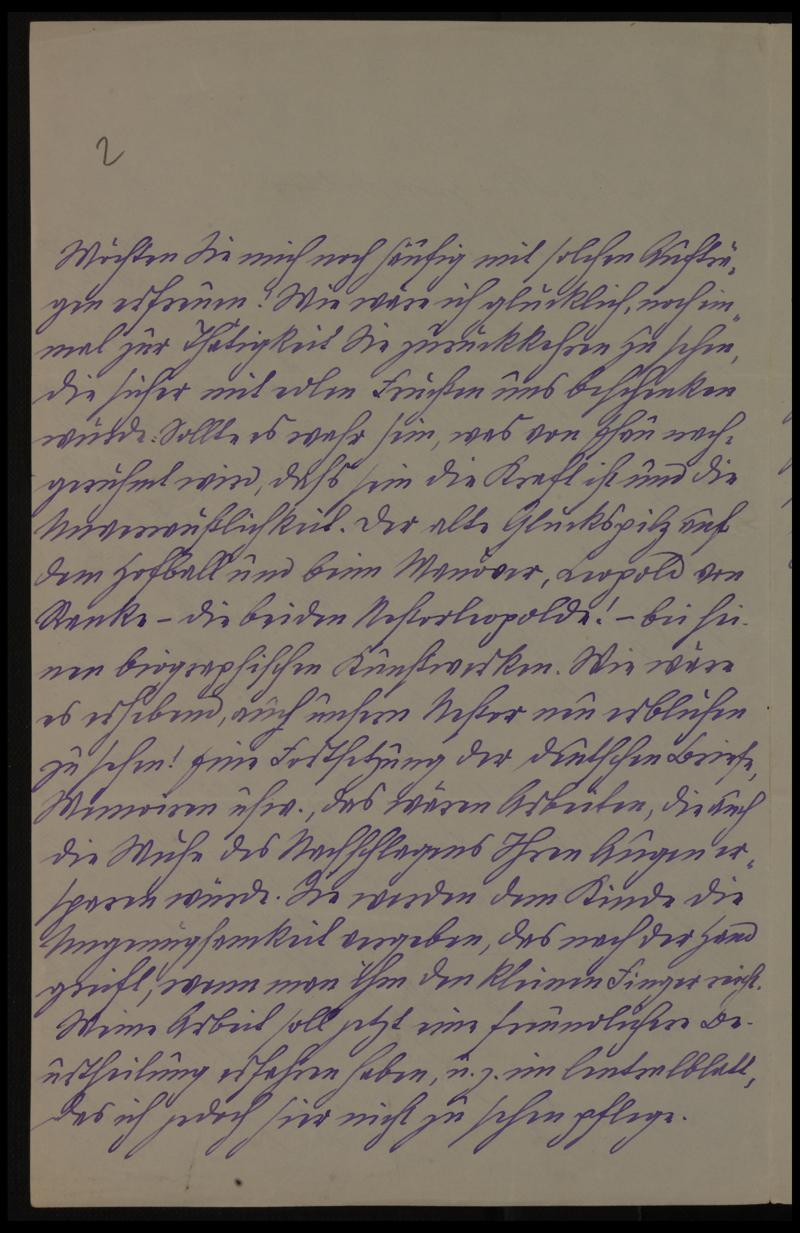 2
Möchten Sie mich noch häufig mit solchen Aufträ-
gen erfreuen! Wie wäre ich glücklich, noch ein-
mal zur Thätigkeit Sie zurückkehren zu sehen,
die sicher mit edlen Früchten uns beschenken
würde. Sollte es wahr sein, was von nach-
gerühmt wird, daß sein die Kraft ist und die
Unverwüstlichkeit. Der alte Glückspilz auf
dem Hofball und beim Manöver, Leopold von
Ranke – die beiden Nestorleopolde! – bei sei-
nen biographischen Kunstwerken. Wie wäre
es erhebend, auch unsern Nestor neu erblühen
zu sehen! Eine Fortsetzung der deutschen Briefe,
Memoiren usw., das wären Arbeiten, die auch
die Mühe des Nachschlagens Ihren Augen er-
sparen würde. Sie werden dem Kinde die
Ungenügsamkeit vergeben, das nach der Hand
greift, wenn man ihm den kleinen Finger reicht.
Meine Arbeit soll jetzt eine freundlichere Be-
urtheilung erfahren haben, u. z. im Centralblatt,
das ich jedoch hier nicht zu sehen pflege.